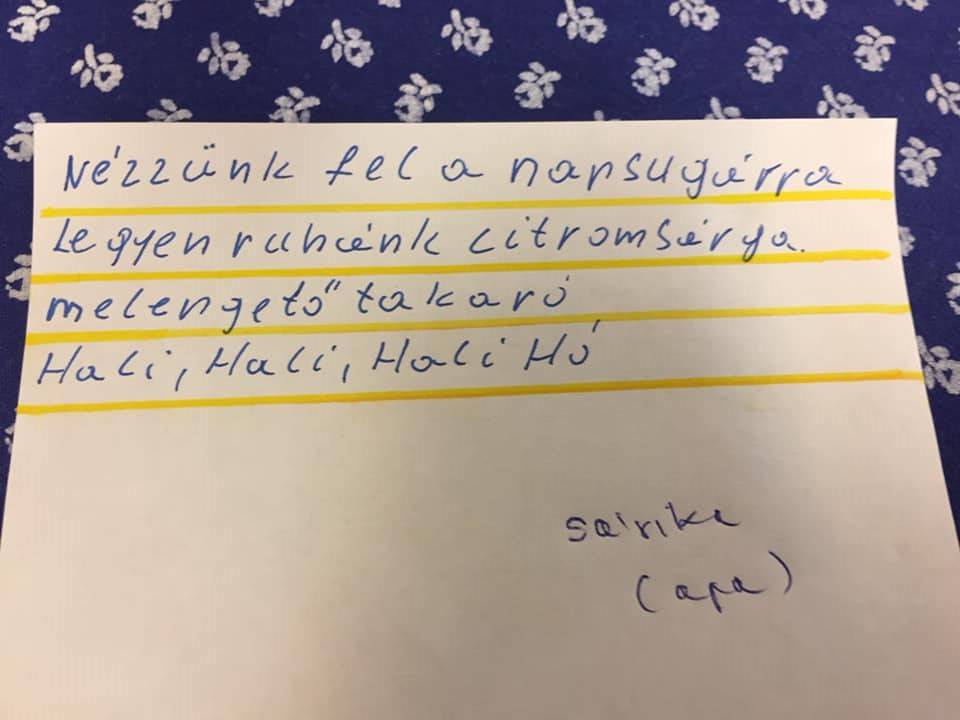 Nézzünk fel a napsugárra
Legyen ruhánk citromsárga.
melengető takaró
Hali, Hali, Hali Hó
sárika
(apa)